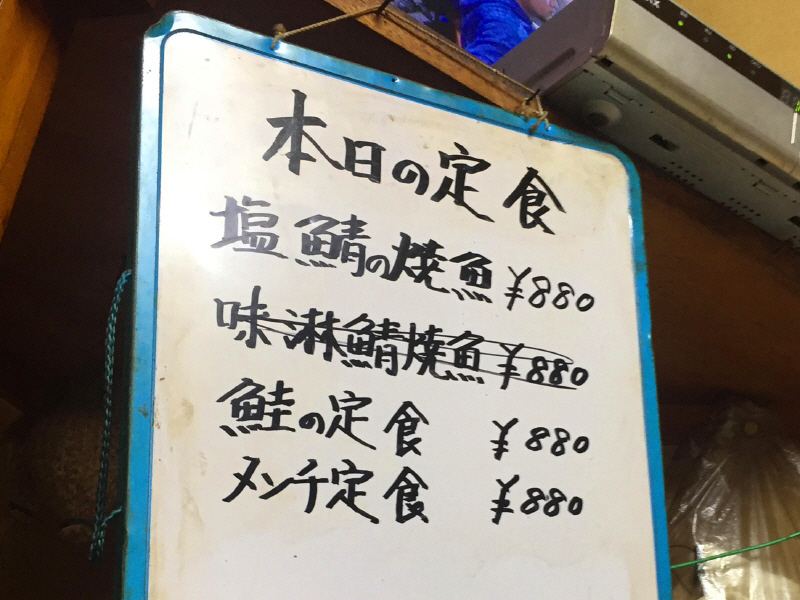 本日の定食
塩鯖の焼魚 ¥880
味淋鯖焼魚 ¥880
鮭の定食 ¥880
メンチ定食 ¥880